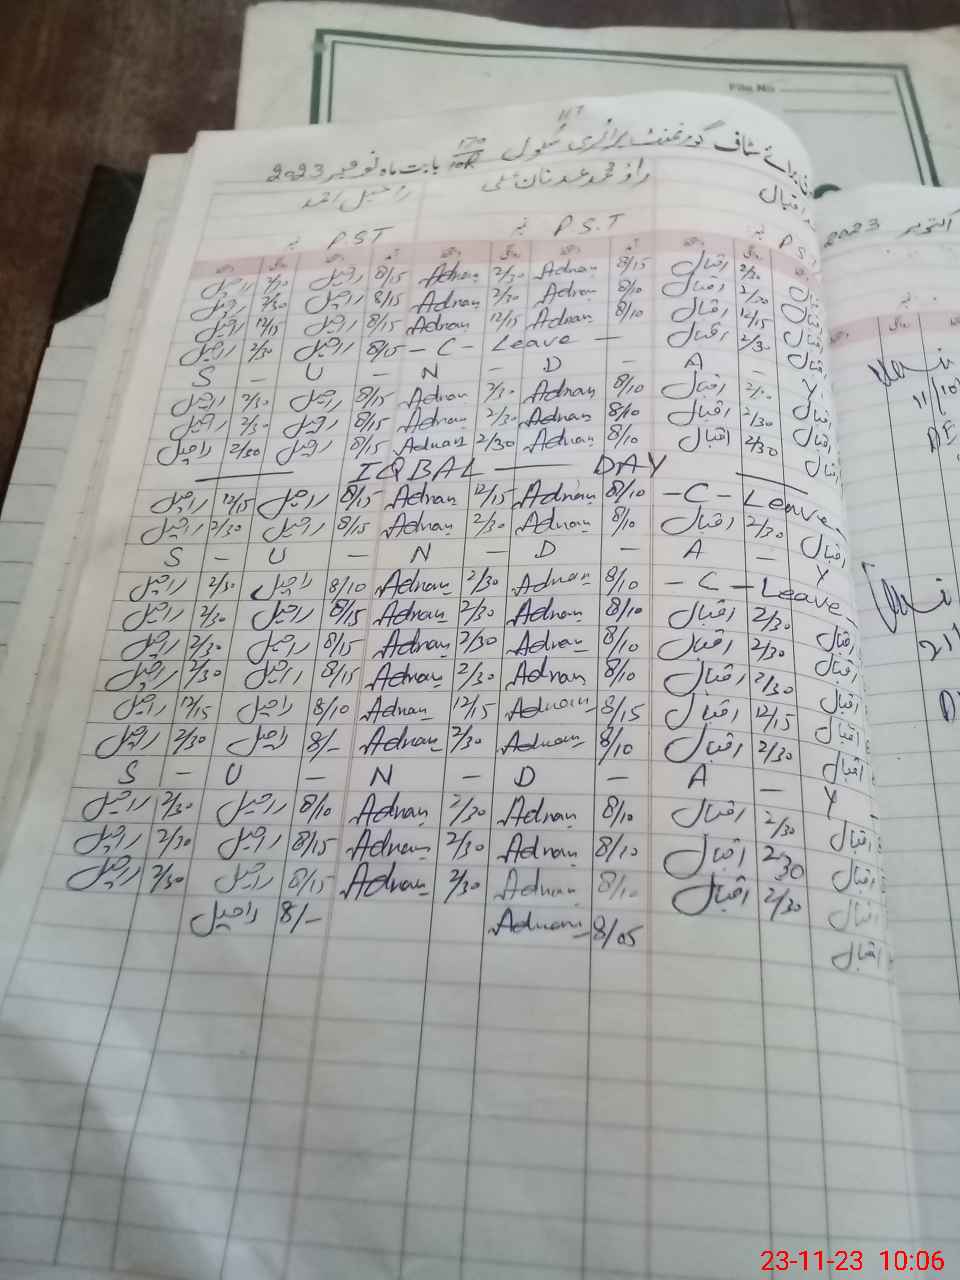 File No
سٹاف گورنمنٹ پرائمری سکول 117 170/10R بابت ماہ نومبر 2023
اقبال راؤ محمد عدنان علی راحیل احمد
P.S.T P.S.T
اقبال 2/30 اقبال 8/15 Adnan 2/30 Adnan 8/15 راحیل 2/30 راحیل
اقبال 2/30 اقبال 8/10 Adnan 2/30 Adnan 8/15 راحیل 2/30 راحیل
اقبال 12/15 اقبال 8/10 Adnan 12/15 Adnan 8/15 راحیل 12/15 راحیل
اقبال 2/30 اقبال - C - Leave - 8/15 راحیل 2/30 راحیل
S - U - N - D - A - Y
اقبال 2/30 اقبال 8/10 Adnan 2/30 Adnan 8/15 راحیل 2/30 راحیل
اقبال 2/30 اقبال 8/10 Adnan 2/30 Adnan 8/15 راحیل 2/30 راحیل
اقبال 2/30 اقبال 8/10 Adnan 2/30 Adnan 8/15 راحیل 2/30 راحیل
IQBAL DAY
- C - Leave - 8/10 Adnan 12/15 Adnan 8/15 راحیل 12/15 راحیل
اقبال 2/30 اقبال 8/10 Adnan 2/30 Adnan 8/15 راحیل 2/30 راحیل
S - U - N - D - A - Y
- C - Leave 8/10 Adnan 2/30 Adnan 8/10 راحیل 2/30 راحیل
اقبال 2/30 اقبال 8/10 Adnan 2/30 Adnan 8/15 راحیل 2/30 راحیل
اقبال 2/30 اقبال 8/10 Adnan 2/30 Adnan 8/15 راحیل 2/30 راحیل
اقبال 2/30 اقبال 8/10 Adnan 2/30 Adnan 8/15 راحیل 2/30 راحیل
اقبال 12/15 اقبال 8/15 Adnan 12/15 Adnan 8/10 راحیل 12/15 راحیل
اقبال 2/30 اقبال 8/10 Adnan 2/30 Adnan 8/- راحیل 2/30 راحیل
S - U - N - D - A - Y
اقبال 2/30 اقبال 8/10 Adnan 2/30 Adnan 8/10 راحیل 2/30 راحیل
اقبال 2/30 اقبال 8/10 Adnan 2/30 Adnan 8/15 راحیل 2/30 راحیل
اقبال 2/30 اقبال 8/10 Adnan 2/30 Adnan 8/15 راحیل 2/30 راحیل
اقبال 8/05 Adnan 8/- راحیل
اکتوبر 2023
23-11-23 10:06